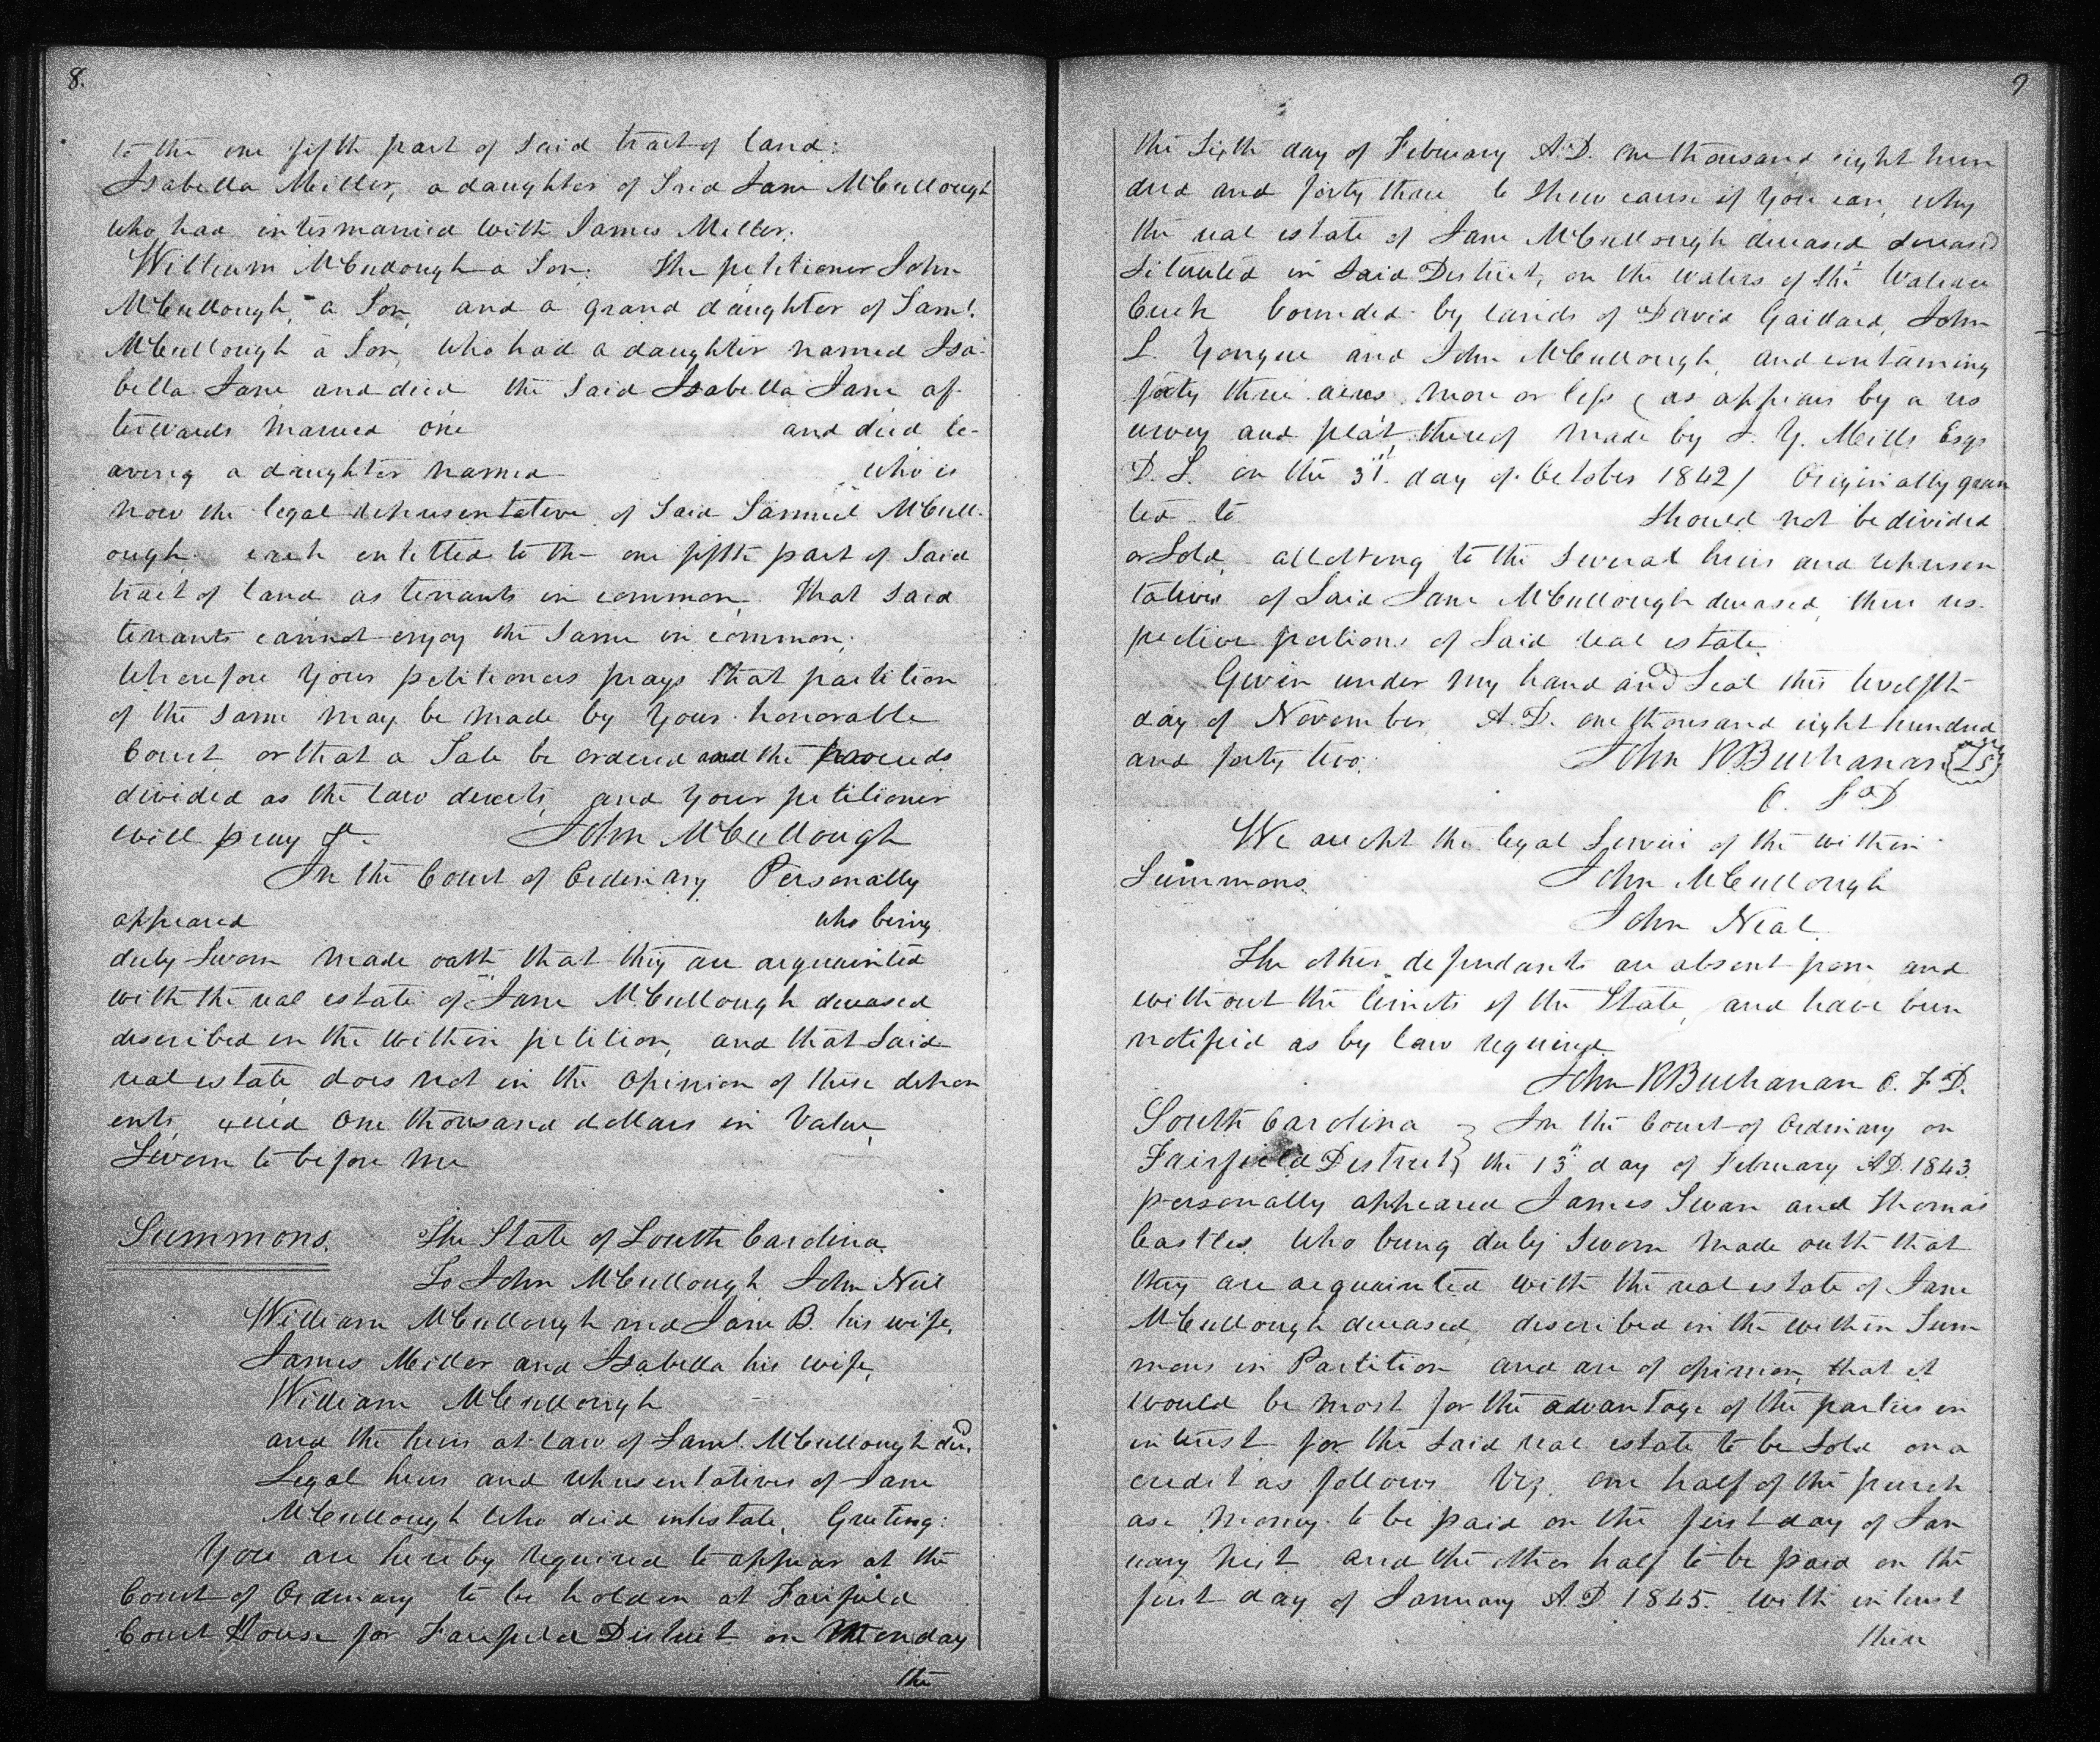 8.
to the one fifth part of Said tract of land:
Isabella Miller, a daughter of Said Jane McCullough
who had intermarried with James Miller.
William McCullough a Son. The petitioner John
McCullough, a Son, and a grand daughter of Saml.
McCullough a Son, who had a daughter named Isa-
bella Jane and died the Said Isabella Jane af-
terwards married one and died le-
aving a daughter named who is
now the legal representative of Said Samuel McCull-
ough each entitled to the one fifth part of Said
tract of land as tenants in common. That Said
tenants cannot enjoy the Same in common,
Wherefore Your petitioners prays that partition
of the Same may be made by Your honorable
Court or that a Sale be ordered and the proceeds
divided as the law directs, and Your petitioner
will pray &c. John McCullough
In the Court of Ordinary Personally
appeared who being
duly Sworn made oath that they are acquainted
with the real estate of Jane McCullough deceased
described in the within petition, and that Said
real estate does not in the opinion of these depon
ents, exceed One thousand dollars in Value,
Sworn to before me
Summons. The State of South Carolina.
To John McCullough John Neil
William McCullough and Jane B. his wife,
James Miller and Isabella his wife,
William McCullough
and the heirs at law of Saml. McCullough decd.
Legal heirs and representatives of Jane
McCullough who died intestate, Greeting:
You are hereby required to appear at the
Court of Ordinary to be holden at Fairfield
Court House for Fairfield District on Monday
the
9
the Sixth day of February A.D. one thousand eight hun
dred and forty three to Shew cause if You can, why
the real estate of Jane McCullough deceased deceased
Situated in Said District, on the waters of the Wateree
Creek bounded by lands of David Gaillard, John
L. Yongue and John McCullough, and containing
forty three acres more or less (as appears by a res
urvey and plat thereof made by J. Y. Mills Esqr
D. S. on the 31st. day of October 1842) Originally gran
ted to Should not be divided
or Sold, allotting to the Several heirs and represen
tatives of Said Jane McCullough deceased, their res-
pective portions of Said real estate.
Given under my hand and Seal this twelfth
day of November, A.D. one thousand eight hundred
and forty two. John R Buchanan LS
O. F D
We accept the legal Service of the within
Summons. John McCullough
John Neal.
The other defendants are absent from and
without the limits of the State, and have been
notified as by law required.
John R Buchanan O. F. D.
South Carolina } In the Court of Ordinary on
Fairfield District } the 13th day of February AD. 1843.
personally appeared James Swan and Thomas
Castles, who being duly Sworn made outh that
they are acquainted with the real estate of Jane
McCullough deceased, described in the within Sum
mons in Partition and are of opinion, that it
would be most for the advantage of the parties in
interest for the Said real estate to be Sold on a
credit as follows Viz. one half of the purch
ase money to be paid on the first day of Jan
uary next and the other half to be paid on the
first day of January A.D 1845. with interest
there